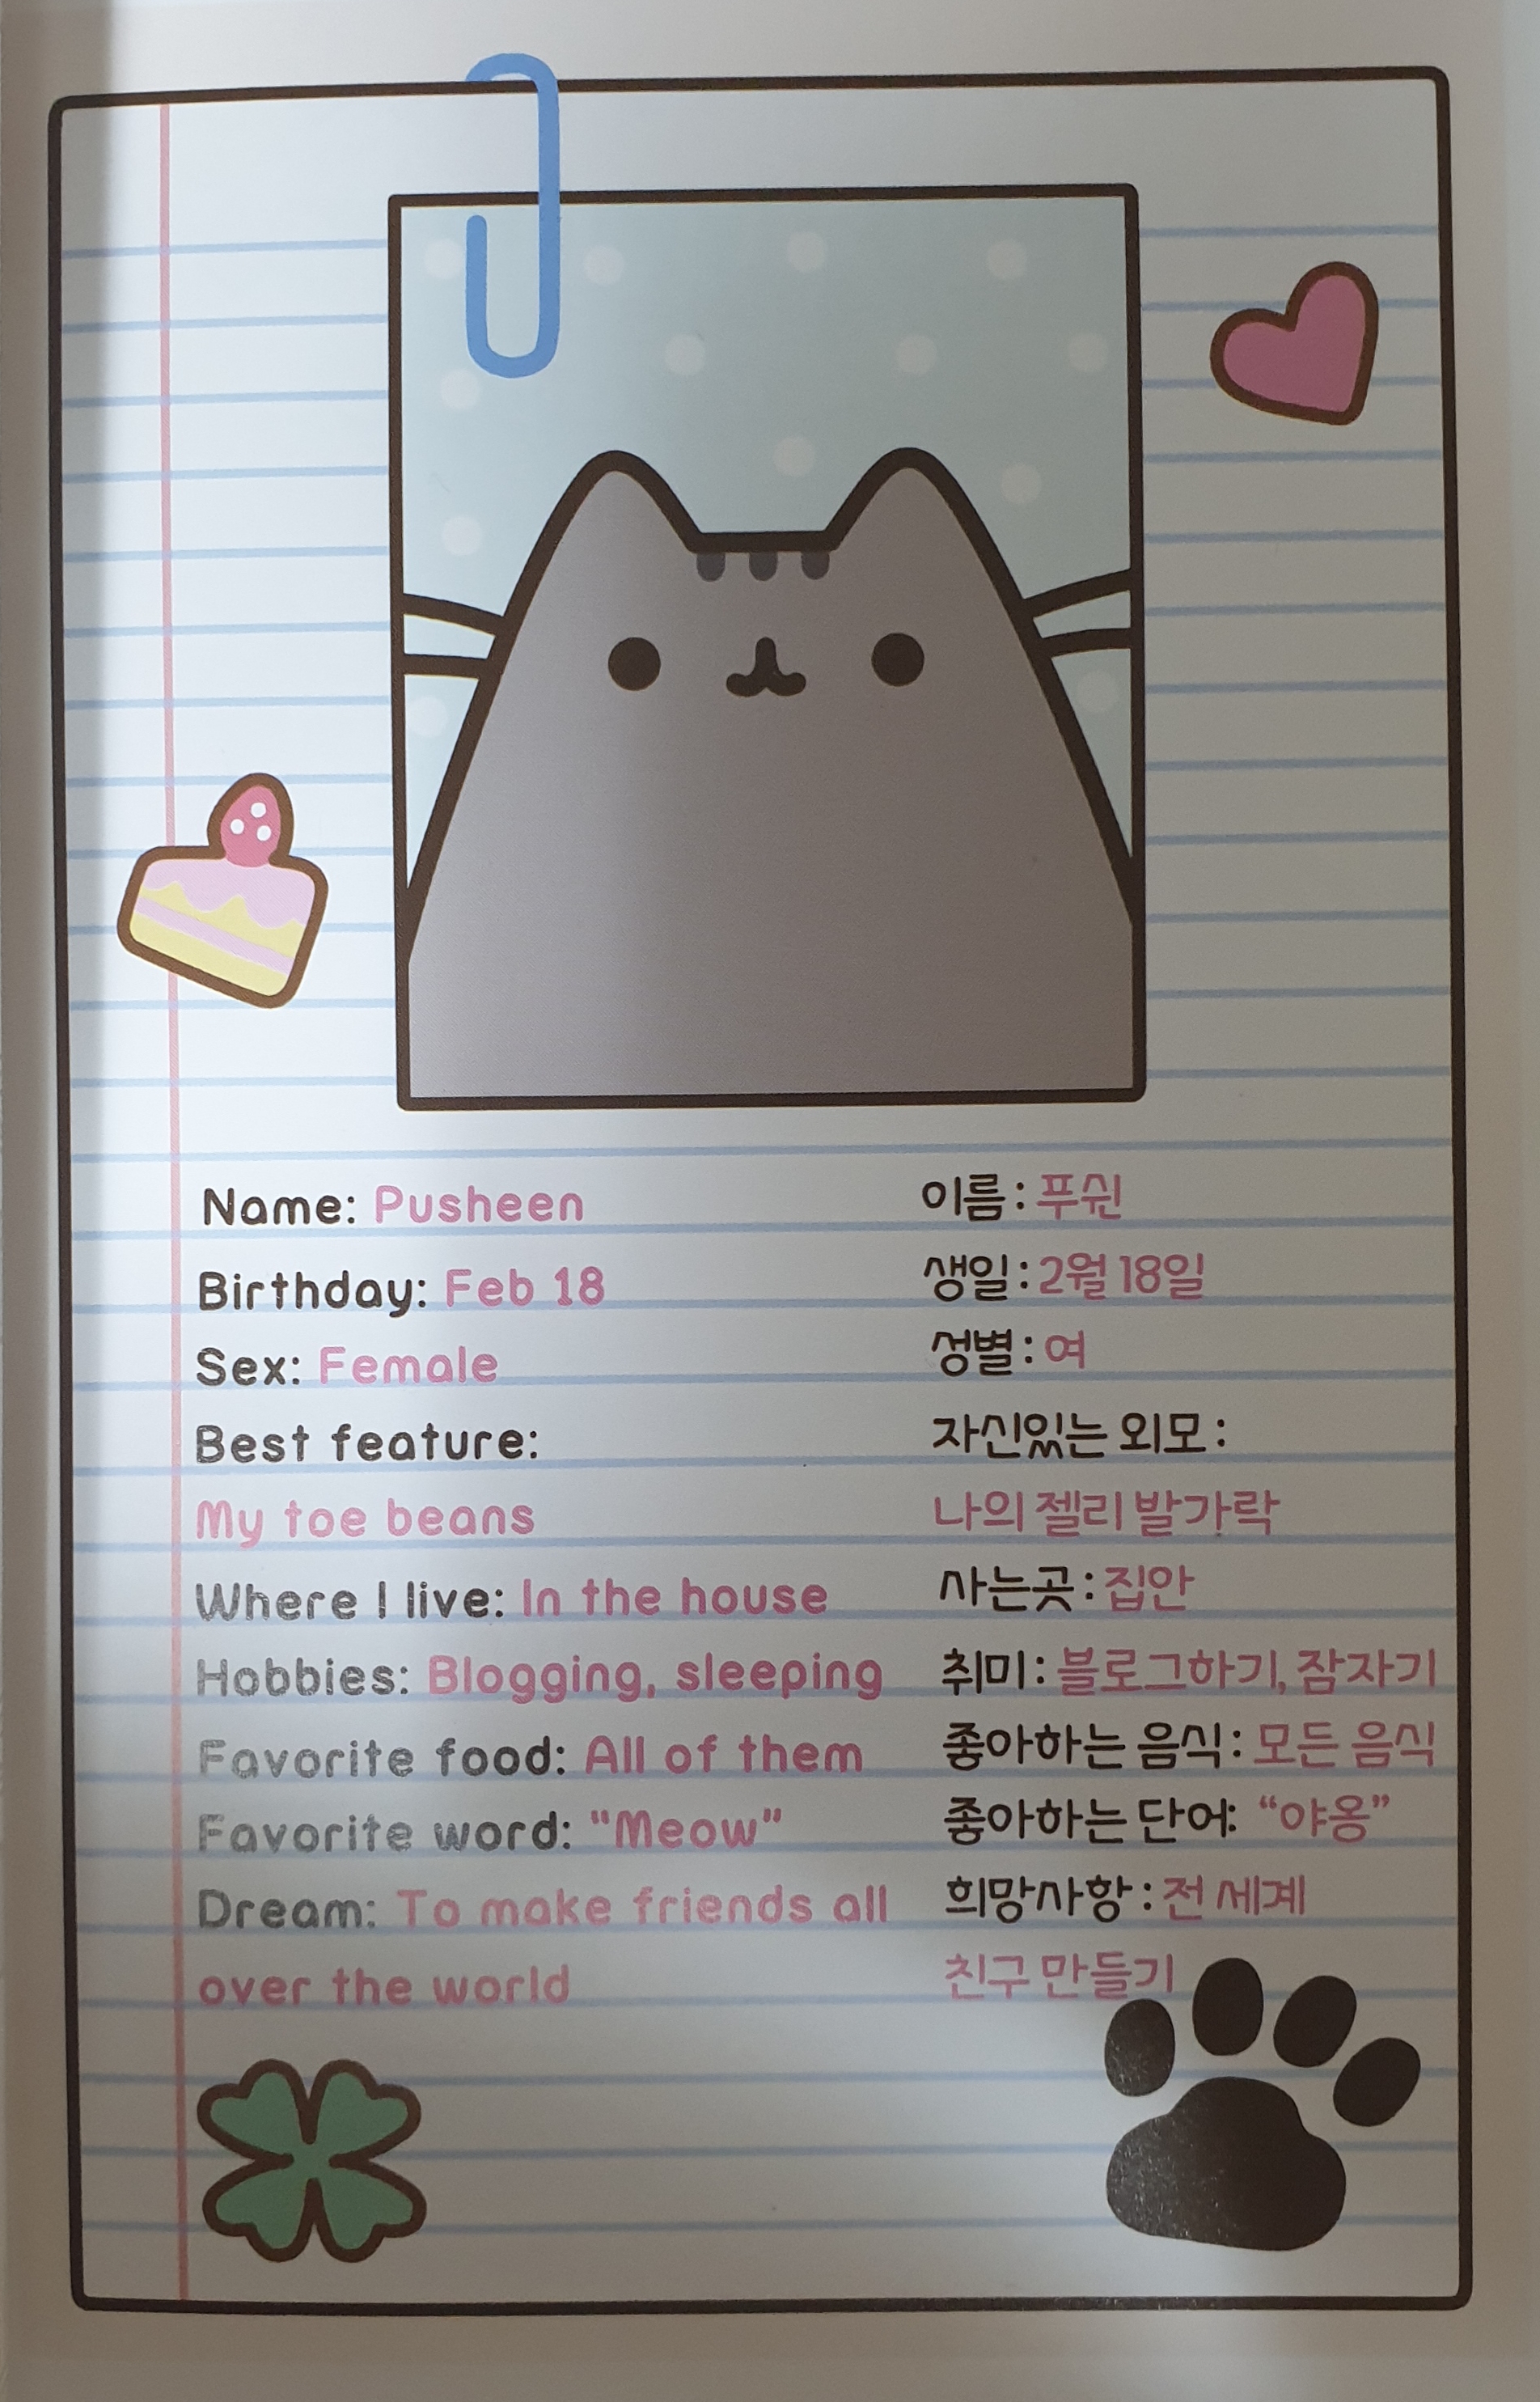 Name: Pusheen
Birthday: Feb 18
Sex: Female
Best feature:
My toe beans
Where I live: In the house
Hobbies: Blogging, sleeping
Favorite food: All of them
Favorite word: "Meow"
Dream: To make friends all
over the world
이름 : 푸쉰
생일 : 2월 18일
성별 : 여
자신있는 외모 :
나의 젤리 발가락
사는곳 : 집안
취미 : 블로그하기, 잠자기
좋아하는 음식 : 모든 음식
좋아하는 단어: “야옹”
희망사항 : 전 세계
친구 만들기